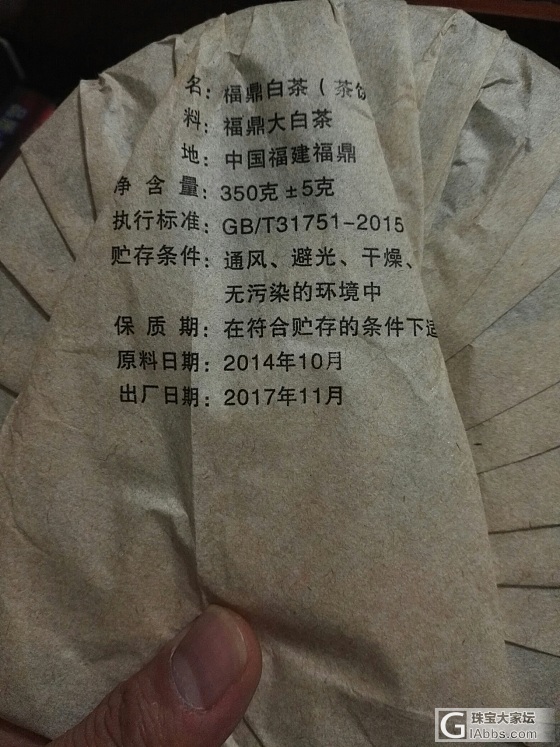 名：福鼎白茶（茶饼
料：福鼎大白茶
地：中国福建福鼎
净含量：350克±5克
执行标准：GB/T31751-2015
贮存条件：通风、避光、干燥、
无污染的环境中
保质期：在符合贮存的条件下适
原料日期：2014年10月
出厂日期：2017年11月
珠宝大家坛
GIAbbs.com